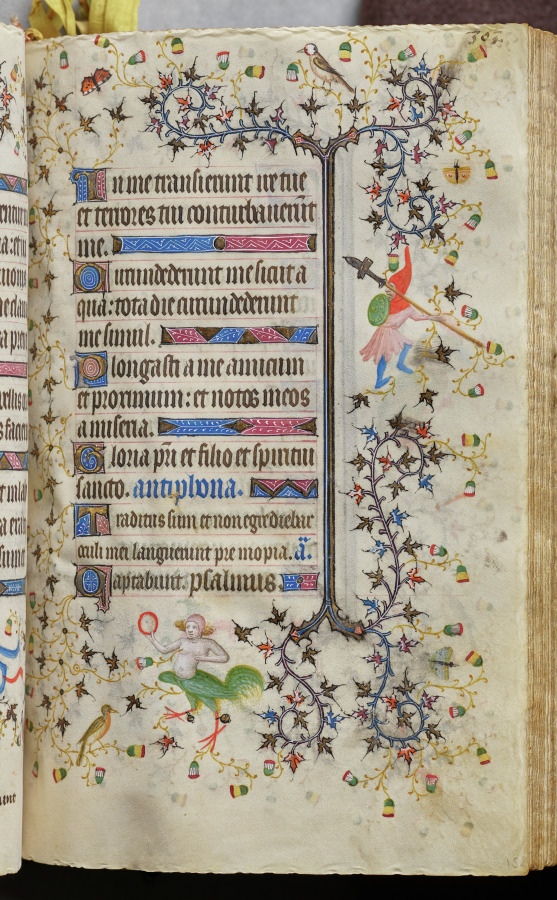 In me transierunt ire tue
et terrores tui conturbauerūt
me.
Circumdederunt me sicut a
qua: tota die circumdederunt
me simul.
Elongasti a me amicum
et proximum: et notos meos
a miseria.
Gloria pr̄i et filio et spiritui
sancto. antiphona.
Traditus sum et non egrediebar
oculi mei languerunt pre inopia. a̅.
Captabunt. psalmus.